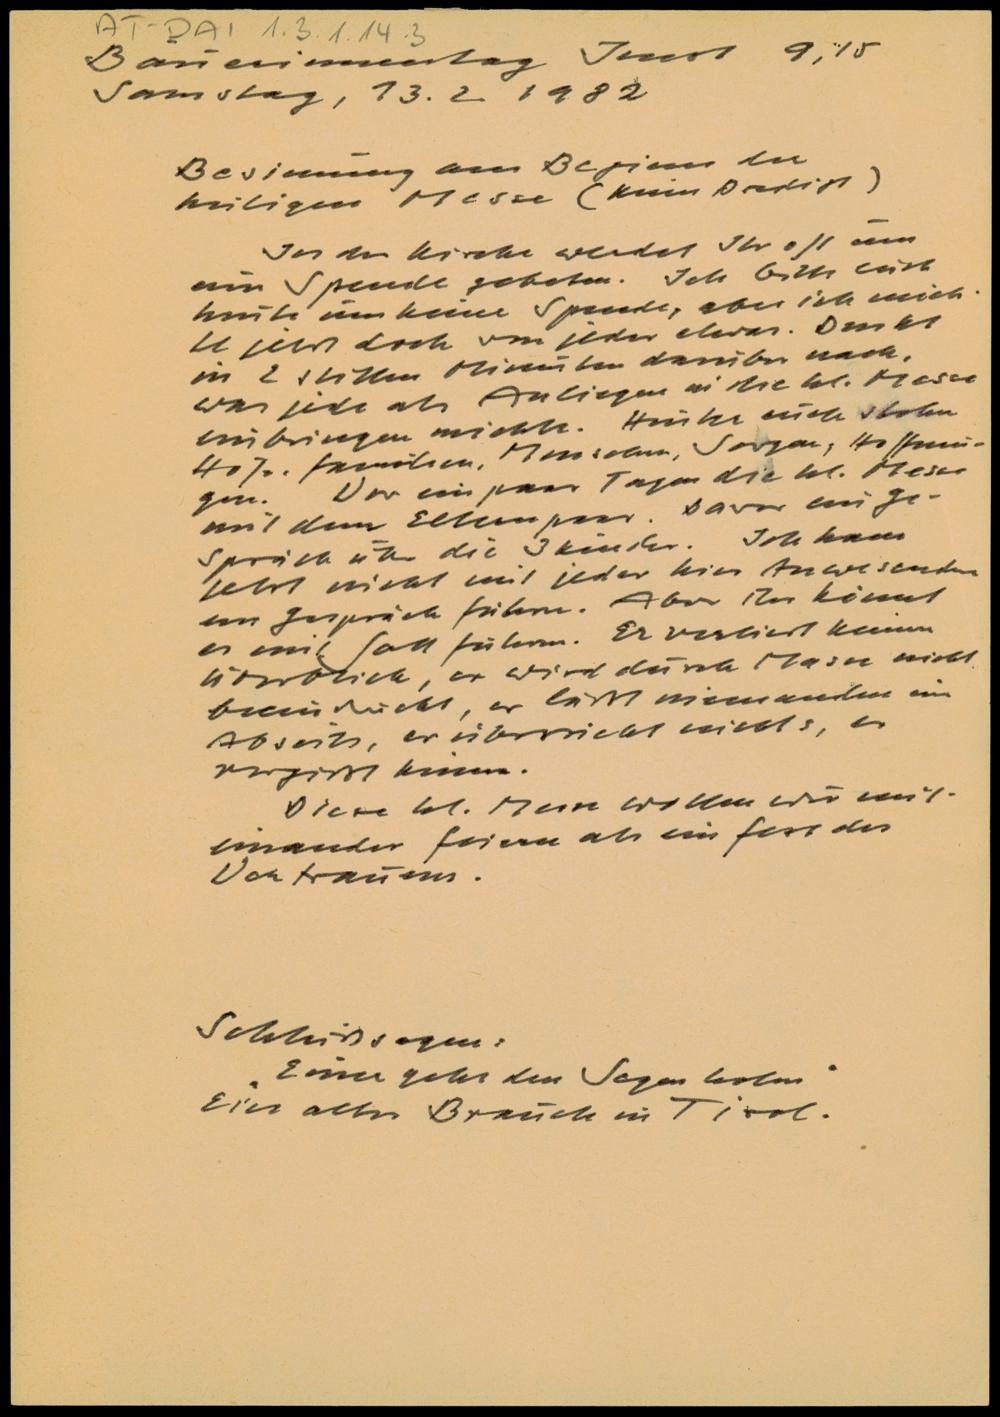 AT-DAI 1.3.1.14.3
Bäuerinnentag Imst 9,15
Samstag, 13. 2 1982
Besinnung am Beginn der
heiligen Messe (keine Predigt)
In der Kirche werdet Ihr oft um
eine Spende gebeten. Ich bitte euch
heute um keine Spende, aber ich möch-
te jetzt doch von jeder etwas. Denkt
in 2 stillen Minuten darüber nach,
was jede als Anliegen in die hl. Messe
einbringen möchte. Hinter euch stehen
Höfe. Familien, Menschen, Sorgen, Hoffnun-
gen. Vor ein paar Tagen die hl. Messe
mit dem Elternpaar. Davor ein Ge-
spräch über die 3 Kinder. Ich kann
jetzt nicht mit jeder hier Anwesenden
ein Gespräch führen. Aber Ihr könnt
es mit Gott führen. Er verliert keinen
Überblick, er wird durch Masse nicht
beeindruckt, er läßt niemanden im
Abseits, er übersieht nichts, er
vergißt keinen.
Diese hl. Messe wollen wir mit-
einander feiern als ein Fest des
Vertrauens.
Schlußsegen:
"Eine geht den Segen holen"
Ein alter Brauch in Tirol.